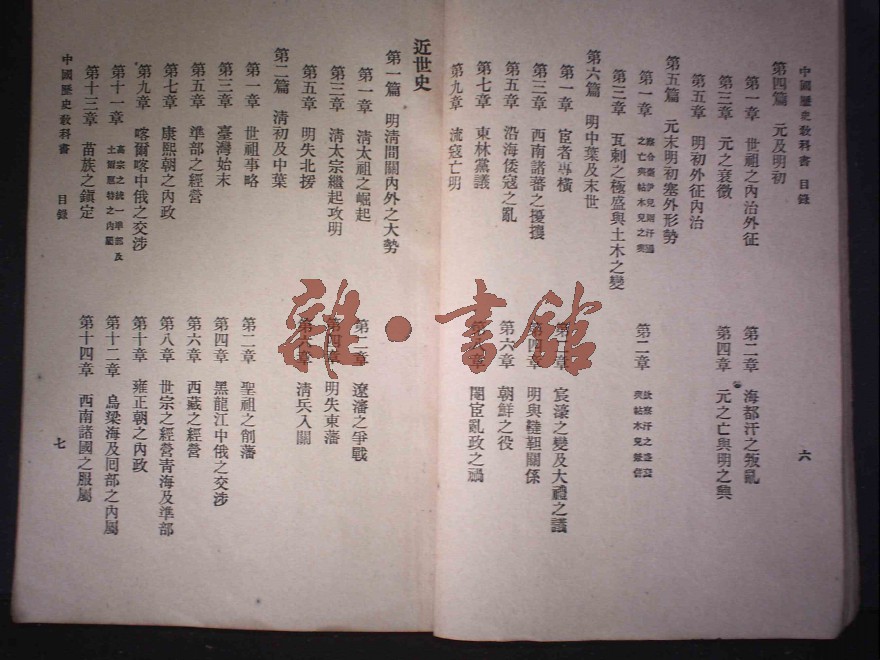 中國歷史敎科書 目錄
六
第四篇 元及明初
第一章 世祖之內治外征
第二章 海都汗之叛亂
第三章 元之衰徵
第四章 元之亡與明之興
第五章 明初外征內治
第五篇 元末明初塞外形勢
第一章
之亡與帖木兒之興
第二章
第三章 瓦剌之極盛與土木之變
第六篇 明中葉及末世
第一章 宦者專橫
第二章 宸濠之變及大禮之議
第三章 西南諸蕃之擾攘
第四章 明與韃靼關係
第五章 沿海倭寇之亂
第六章 朝鮮之役
第七章 東林黨議
第八章 閹宦亂政之禍
第九章 流寇亡明
近世史
第一篇 明淸間關內外之大勢
第一章 淸太祖之崛起
第二章 遼瀋之爭戰
第三章 淸太宗繼起攻明
第四章 明失東藩
第五章 明失北援
第六章 淸兵入關
第二篇 淸初及中葉
第一章 世祖事略
第二章 聖祖之削藩
第三章 臺灣始末
第四章 黑龍江中俄之交涉
第五章 準部之經營
第六章 西藏之經營
第七章 康熙朝之內政
第八章 世宗之經營靑海及準部
第九章 喀爾喀中俄之交涉
第十章 雍正朝之內政
第十一章 高宗之統一準部及土爾扈特之內屬
第十二章 烏梁海及回部之內屬
第十三章 苗族之鎭定
第十四章 西南諸國之服屬
中國歷史敎科書 目錄
七
雜·書館